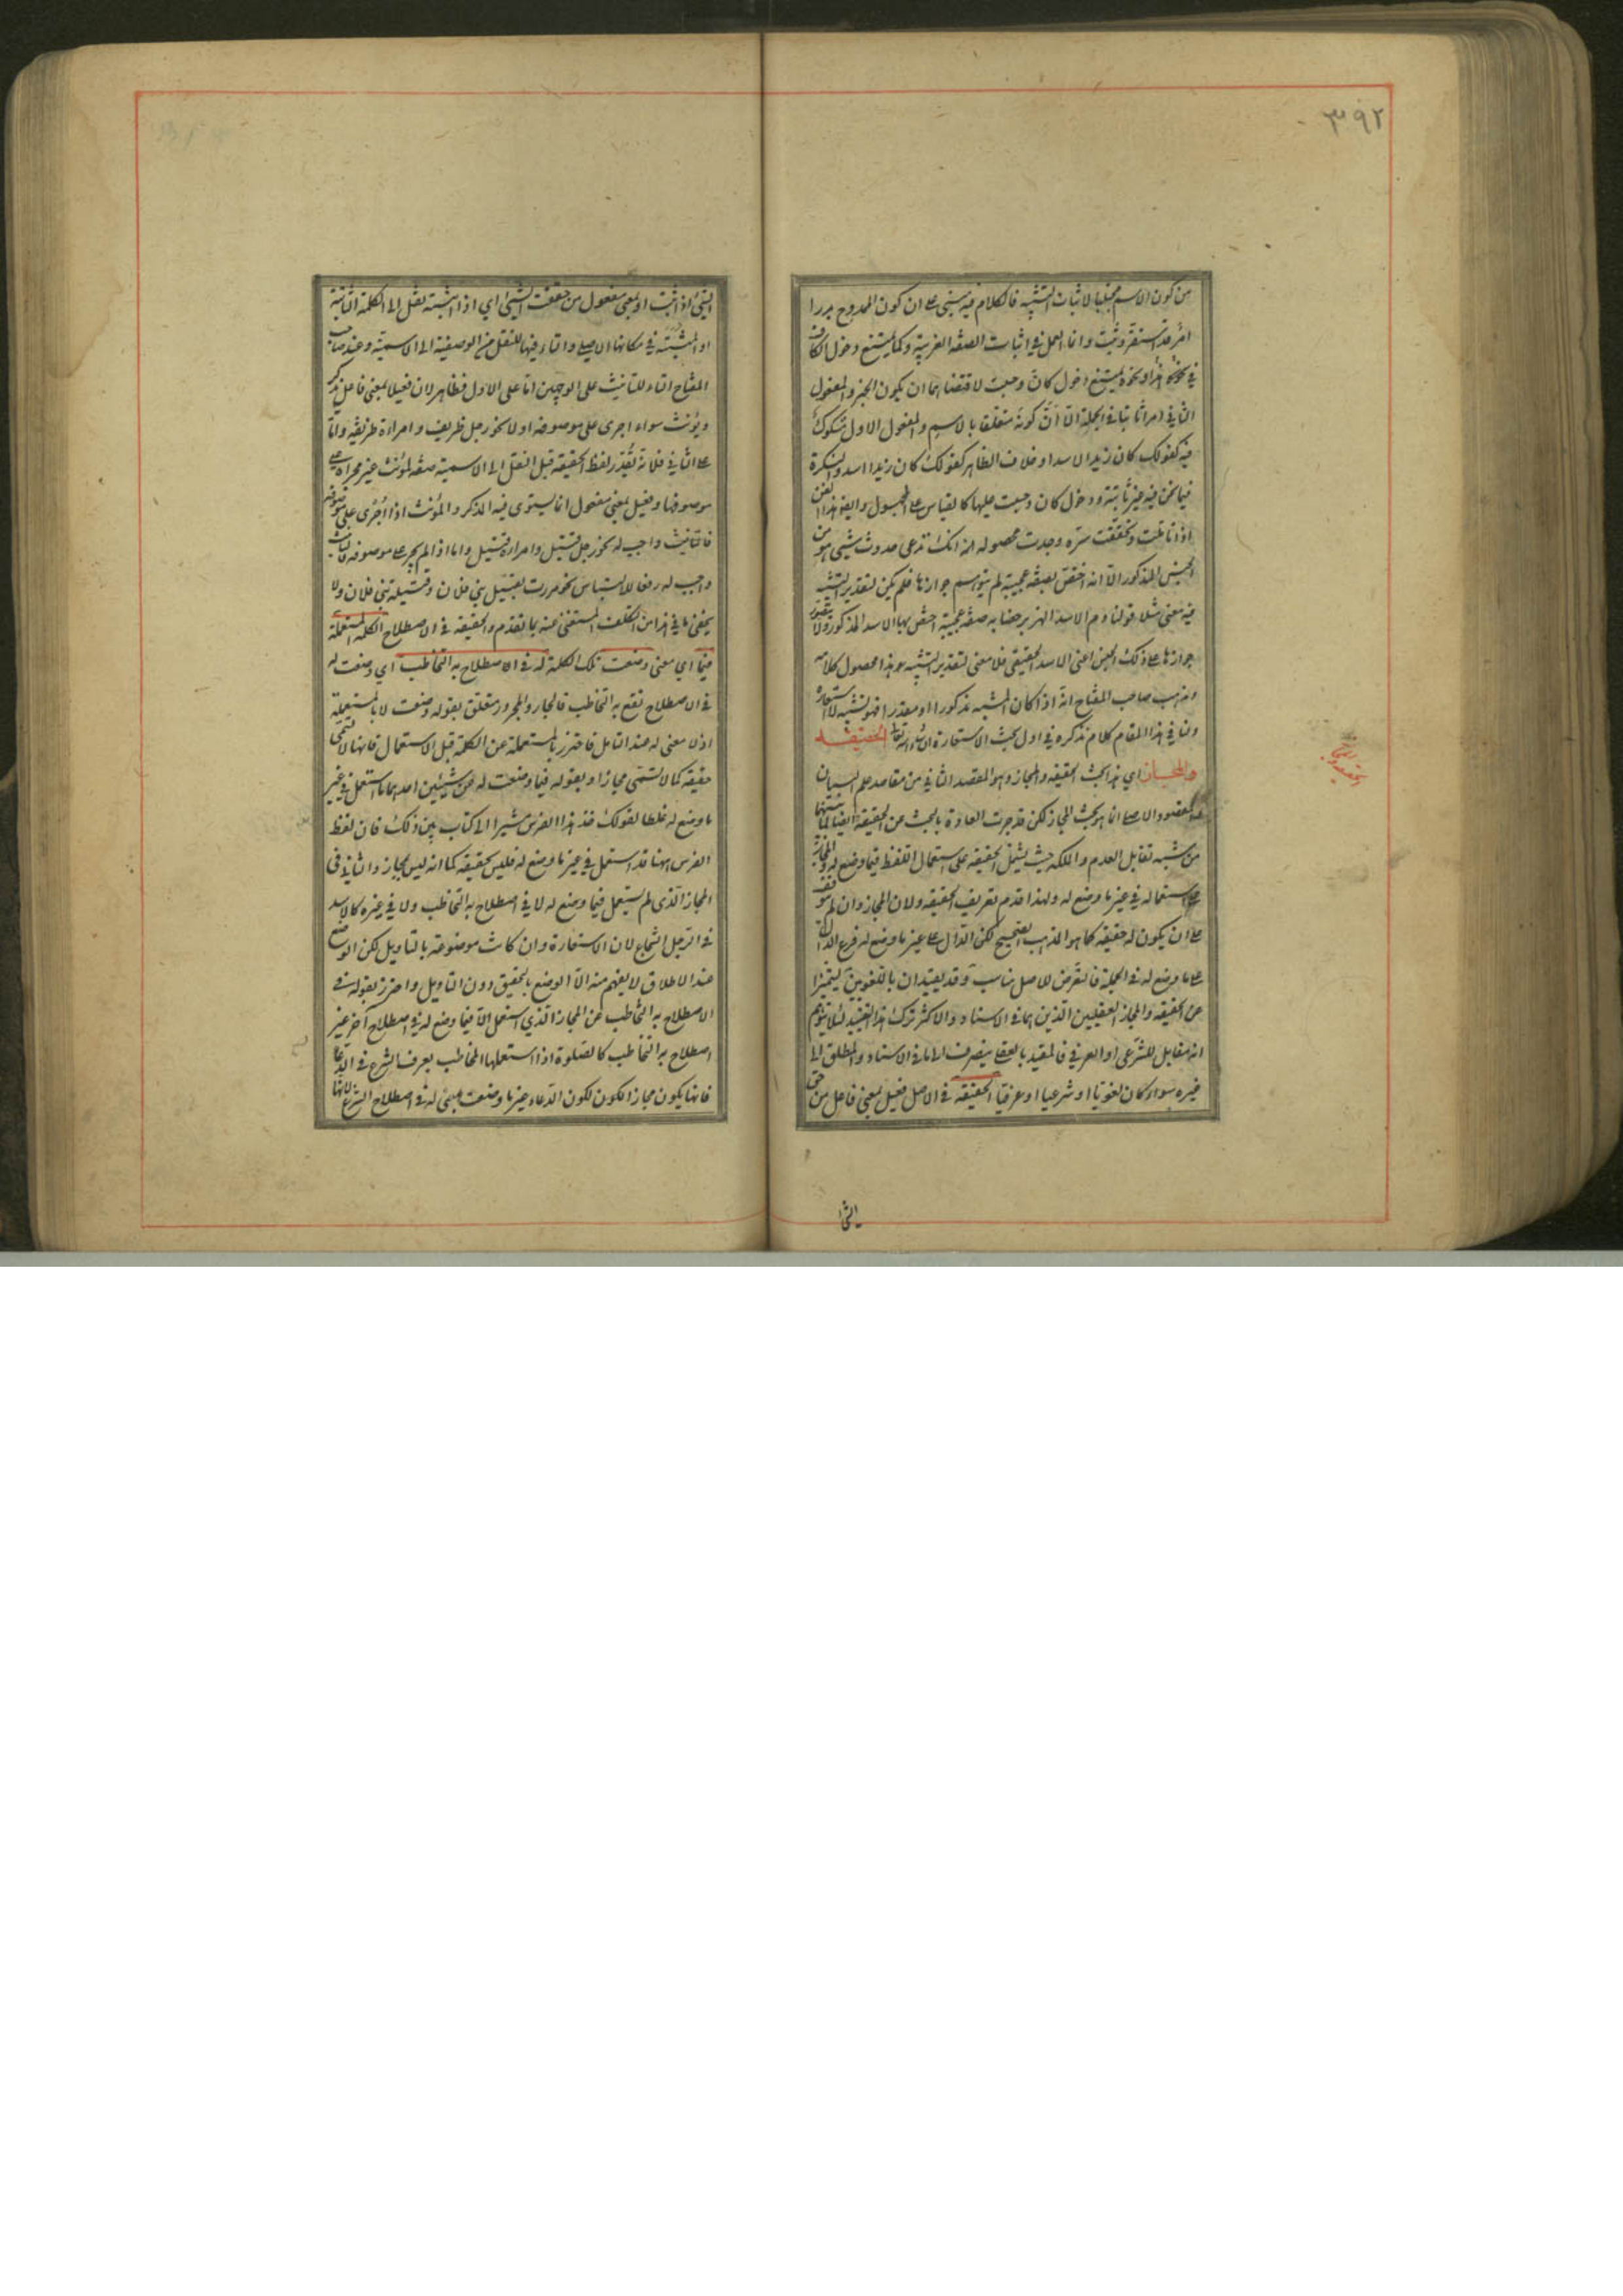 ٣٩٢
من كون الاسم مجتلبا لاثبات التشبيه فالكلام فيه مبنى على ان كون الممدوح بدرا
امر قد استقر وثبت وانما العمل فى اثبات الصفة الغريبة وكما يمتنع دخول الكاف
فى نحو هذا ونحوه يمتنع دخول كان وحسبت لاقتضائهما ان يكون الخبر والمفعول
الثانى امرا ثابتا فى الجملة الا ان كونه متعلقا بالاسم والمفعول الاول مشكوك
فيه كقولك كان زيدا الاسد او خلاف الظاهر كقولك كان زيدا اسد والنكرة
فيما نحن فيه غير ثابتة ودخول كان وحسبت عليها كالقياس على المجهول وايضا هذا الفن
اذا تاملت وتحققت سره وجدت محصوله انك تدعى حدوث شيئى هو من
الجنس المذكور الا انه اختص بصفة عجيبة لم يتوهم جوازها فلم يكن لتقدير التشبيه
فيه معنى مثلا قولنا دم الاسد الهزبر خضابه صفة عجيبة اختص بها الاسد المذكور ولا يتصور
جوازها على ذلك الجنس اعنى الاسد الحقيقى فلا معنى لتقدير التشبيه هذا محصول كلامه
ومذهب صاحب المفتاح انه اذا كان المشبه مذكورا او مقدرا فهو تشبيه لا استعارة
ولنا فى هذا المقام كلام نذكره فى اول بحث الاستعارة ان شاء الله تعالى الحقيقة
والمجاز اى هذا بحث الحقيقة والمجاز وهو المقصد الثانى من مقاصد علم البيان
والمقصود الاصلى انما هو بحث المجاز لكن قد جرت العادة بالبحث عن الحقيقة ايضا لما بينهما
من شبه تقابل العدم والملكة حيث يشتمل الحقيقة على استعمال اللفظ فيما وضع له والمجاز
على استعماله فى غير ما وضع له ولهذا قدم تعريف الحقيقة ولان المجاز وان لم يتوقف
على ان يكون له حقيقة كما هو المذهب الصحيح لكن الدال على غير ما وضع له فرع الدال
على ما وضع له فى الجملة فالتعرض للاصل مناسب وقد يقيدان باللغويين ليتميزا
عن الحقيقة والمجاز العقليين الذين هما فى الاسناد والاكثر ترك هذا التقييد لئلا يتوهم
انه مقابل للشرعى او العرفى فالمقيد بالعقلى ينصرف الى ما فى الاسناد والمطلق الى
غيره سواء كان لغويا او شرعيا او عرفيا الحقيقة فى الاصل فعيل بمعنى فاعل من حق
الشئ
الشئ اذا ثبت او بمعنى مفعول من حققت الشئ اى اذا اثبته نقل الى الكلمة الثابتة
او المثبتة فى مكانها الاصلى والتاء فيها للنقل من الوصفية الى الاسمية وعند صاحب
المفتاح التاء للتانيث على الوجهين اما على الاول فظاهر لان فعيلا بمعنى فاعل يذكر
ويؤنث سواء اجرى على موصوفه او لا نحو رجل ظريف وامراة ظريفة واما
على الثانى فلانه يقدر لفظ الحقيقة قبل النقل الى الاسمية صفة لمؤنث غير مجراة على
موصوفها وفعيل بمعنى مفعول انما يستوى فيه المذكر والمؤنث اذا اجرى على موصوفه
فالتانيث واجب له نحو رجل قتيل وامراة قتيل واما اذا لم يجر على موصوفه فالتانيث
واجب له رفعا للالتباس نحو مررت بقتيل بنى فلان وقتيلة بنى فلان ولا
يخفى ما فى هذا من التكلف المستغنى عنه بما تقدم والحقيقة فى الاصطلاح الكلمة المستعملة
فيما اى معنى وضعت تلك الكلمة له فى اصطلاح به التخاطب اى وضعت له
فى الاصطلاح يقع به التخاطب فالجار والمجرور متعلق بقوله وضعت لا بالمستعملة
اذلا معنى له عند التامل فاحترز بالمستعملة عن الكلمة قبل الاستعمال فانها لا تسمى
حقيقة كما لا تسمى مجازا وبقوله فيما وضعت له عن شيئين احدهما ما استعمل فى غير
ما وضع له غلطا كقولك خذ هذا الفرس مشيرا الى كتاب بين يديك فان لفظ
الفرس ههنا قد استعمل فى غير ما وضع له فليس بحقيقة كما انه ليس بمجاز والثانى
المجاز الذى لم يستعمل فيما وضع له لا فى اصطلاح به التخاطب ولا فى غيره كالاسد
فى الرجل الشجاع لان الاستعارة وان كانت موضوعة بالتاويل لكن الوضع
عند الاطلاق لا يفهم منه الا الوضع بالتحقيق دون التاويل واحترز بقوله فى
الاصطلاح به التخاطب عن المجاز الذى استعمل الا فيما وضع له فى اصطلاح آخر غير
اصطلاح به التخاطب كالصلوة اذا استعملها المخاطب بعرف الشرع فى الدعا
فانها يكون مجازا لكون الدعاء غير ما وضعت هى له فى اصطلاح الشرع لانها